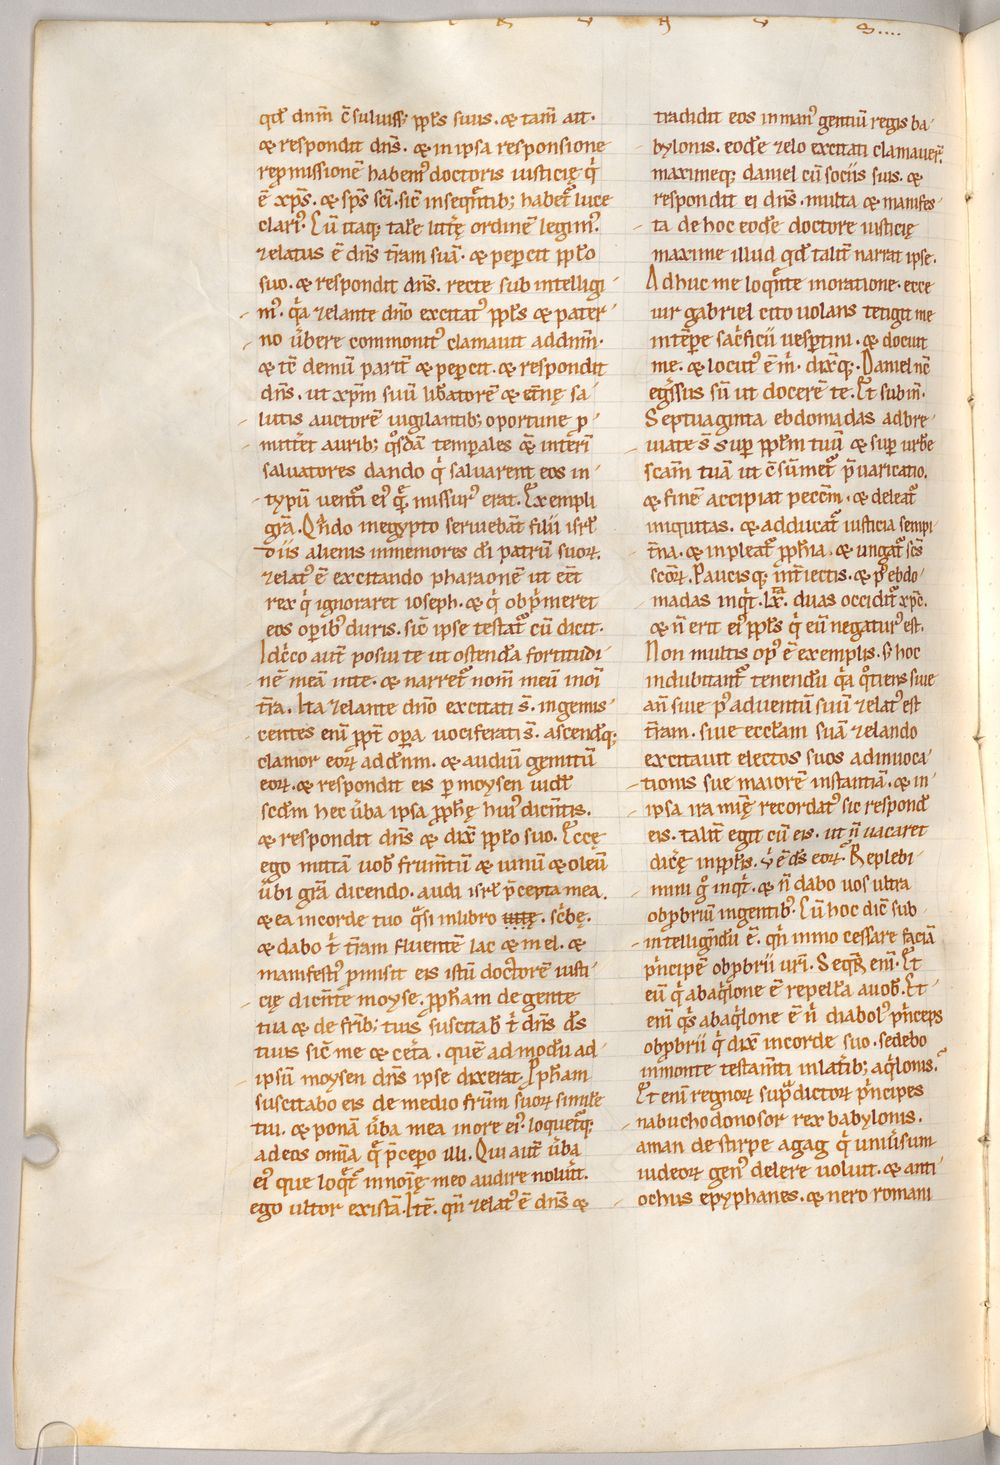 qd̄ dnm̄ c̄suluiss; ppl̄s suus. & tam̄ ait.
& respondit dn̄s. & in ipsa responsione
repmissionē habem᷒ doctoris iusticię q̇
ē xp̄s. & sp̄s sc̄i. sic̄ in seq̄ntib; habet᷑ luce
clari᷒. Cū itaq; tal̄e litt̄ę ordinē legim᷒.
zelatus ē dn̄s t̄ram suā. & pepercit ppl̄o
suo. & respondit dn̄s. recte sub intelligi
m᷒. q̄a zelante dn̄o excitat᷒ ppl̄s & pater
no ūbere commonit᷒ clamauit ad dnm̄.
& tē demū parit̄ & pepcit. & respondit
dn̄s. ut xp̄m suū lib̄atorē & et̄nę sa
lutis auctorē uigilantib; oportune p
mitt̄et aurib; q̊sdā temp̄ales & int̄erī
saluatores dando q̇ saluarent eos in
typū vent̄i ei᷒ q̄ missur᷒ erat. Exempli
grā. Qn̄do in egypto seruiebāt filii isrl̄
diis alienis inmemores dī patrū suoꝝ.
zelat᷒ ē excitando pharaonē ut eēt
rex q̇ ignoraret ioseph. & q̇ obp̄meret
eos opib᷒ duris. sic̄ ipse testat᷑ cū dicit.
Idc̄co aut̄ posui te ut ostend̄a fortitudi
nē meā in te. & narret᷑ nom̄ meū in oī
t̄ra. Ita zelante dn̄o excitati s̄. ingemis
centes enī ppt̄ opa uociferati s̄. ascendq;
clamor eoꝝ ad dn̄m. & audiū gemitū
eoꝝ. & respondit eis p moysen uidl̄
scd̄m hec ūba ipsa pph̄ę hui᷒ dicn̄tis.
& respondit dn̄s & dix̄ ppl̄o suo. Eccę
ego mittā uob̄ frumtū & uinū & oleū
ūbi grā dicendo. audi isrl̄ p̄cepta mea.
& ea in corde tuo q̄si in libro sc̄bę.
& dabo t̄ t̄ram fluentē lac & mel. &
manifesti᷒ pmisit eis istū doctorē iusti
cię dicn̄te moyse. pph̄am de gente
tua & de fr̄ib; tuis suscitab̄ t̄ dn̄s d̄s
tuus sic̄ me & cet̄a. quē ad modū ad
ipsū moysen dn̄s ipse dixerat. Pph̄am
suscitabo eis de medio fr̄um suoꝝ simile
tui. & ponā ūba mea in ore ei᷒. loquet᷑q;
ad eos om̄ia q̄ p̄cepo illi. Qui aut̄ ūba
ei᷒ que loq̄t᷑ in noīę meo audire noluīt.
ego ultor existā. Itē. qn̄ zelat᷒ ē dn̄s &
tradidit eos in man᷒ gentiū regis ba
bylonis. eod̄e zelo excitati clamauer̄.
maximeq; daniel cū sociis suis. &
respondit ei dn̄s. multa & manifes
ta de hoc eod̄e doctore iusticię
maxime illud qd̄ talit̄ narrat ipse.
Adhuc me loq̄nte in oratione. ecce
uir gabriel cito uolans tetigit me
in tēpe sac̄ficii uesptini. & docuit
me. & locut᷒ ē m̄. dix̄q;. Daniel nc̄
eḡssus sū ut docerē te. Et subin̄.
Septuaginta ebdomadas adbre
uiate s̄ sup ppl̄m tuū & sup urbē
scām tuā ut c̄sūmet᷑ p̄uaricatio.
& finē accipiat pecc̄m. & deleat᷑
iniquitas. & adducat᷑ iusticia sempi
t̄na. & inpleat᷑ pph̄ia. & ungat᷑ sc̄s
sc̄oꝝ. Paucisq; int̄iectis. & p᷒ ebdo
madas inq̄t. lx̄. duas occidit᷑ xp̄c.
& n̄ erit ei᷒ ppl̄s q̇ eū negatur᷒ est.
Non multis op᷒ ē exemplis. s; hoc
indubitant᷑ tenendū q̄a q̊tiens siue
an̄ siue p᷒ aduentū suū zelat᷒ est
t̄ram. siue eccl̄am suā zelando
excitauit electos suos ad inuoca
tionis sue maiorē instantiā. & in
ipsa ira mię̄ recordat᷒ sic respond̄
eis. talit̄ egit cū eis. ut n̄ uacaret
dic̄ę in ppl̄is. ubi ē d̄s eoꝝ. Replebi
mini g̊ inq̄t. & n̄ dabo uos ultra
obprbriū in gentib᷒. Cū hoc dic̄ sub
intellign̄dū ē. qn̄ immo cessare faciā
p̄ncipē obprbrii ur̄i. Seq̄r enī. Et
eū q̇ ab aq̄lone ē repellā a uob̄. Et
enī q̇s ab aq̄lone ē n̄ diabol᷒ p̄nceps
obprbrii q̇ dix̄ in corde suo. sedebo
in monte testam̄ti in lat̄ib; aq̄lonis.
Et enī regnoꝝ sup̄dictoꝝ p̄ncipes
nabuchodonosor rex babylonis.
aman de stirpe agag q̇ uniūsum
iudeoꝝ gen᷒ delere uoluit. & anti
ochus epyphanes. & nero romani